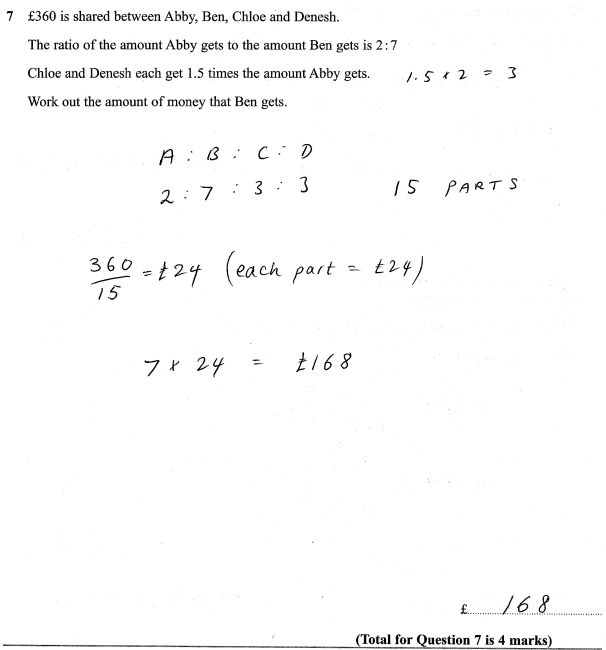 7 £360 is shared between Abby, Ben, Chloe and Denesh.
The ratio of the amount Abby gets to the amount Ben gets is 2:7
Chloe and Denesh each get 1.5 times the amount Abby gets. 1.5 × 2 = 3
Work out the amount of money that Ben gets.
A : B : C : D
2 : 7 : 3 : 3 15 PARTS
360/15 = £24 (each part = £24)
7 × 24 = £168
£ 168
(Total for Question 7 is 4 marks)